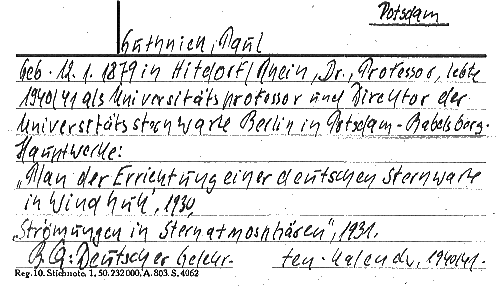 Potsdam
Guthnick, Paul
Geb. 12. 1. 1879 in Hitdorf/Rhein, Dr., Professor, lebte
1940/41 als Universitätsprofessor und Direktor der
Universitätssternwarte Berlin in Potsdam-Babelsberg.
Hauptwerke:
"Plan der Errichtung einer deutschen Sternwarte
in Windhuk", 1930,
"Strömungen in Sternatmosphären", 1931.
B.Q.: Deutscher Gelehr- ten-Kalend., 1940/41.
Reg. 10. Stichnote. 1, 50. 232 000, A. 803. S. 4062